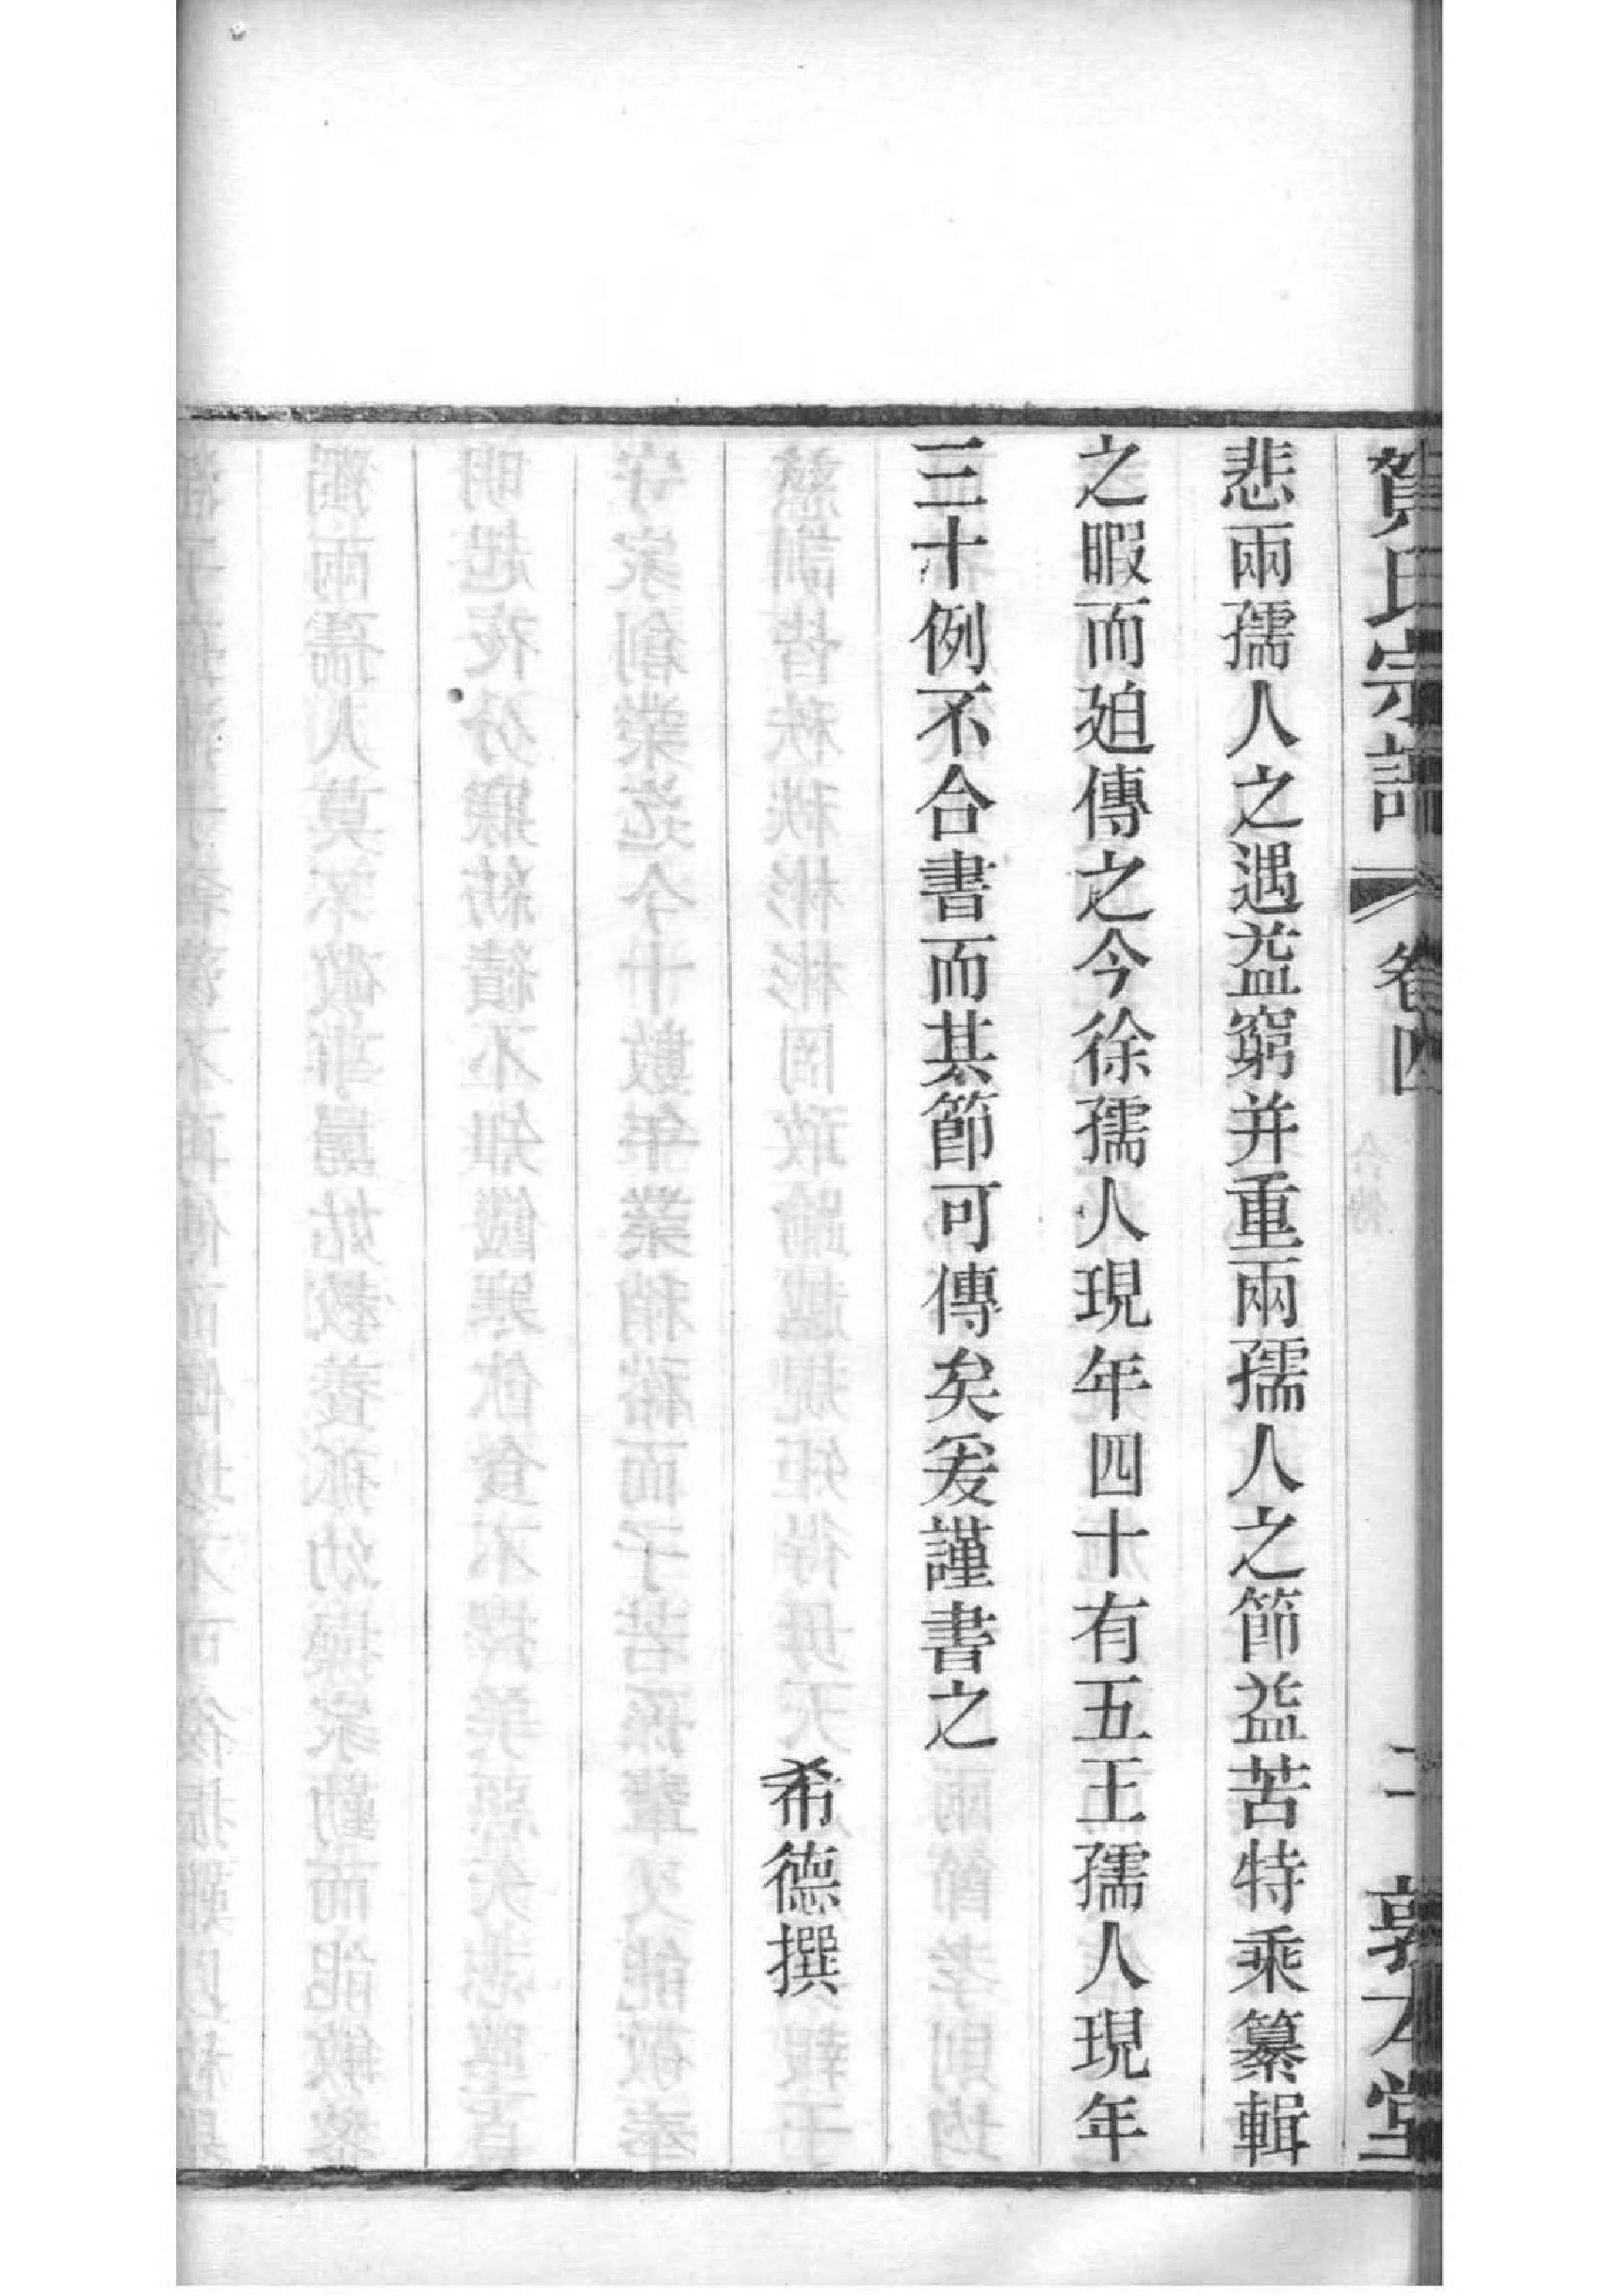 賀氏宗譜 卷四 合傳 二 敦本堂
悲兩孺人之遇益窮并重兩孺人之節益苦特乘纂輯
之暇而廹傳之今徐孺人現年四十有五王孺人現年
三十例不合書而其節可傳矣爰謹書之
希德撰